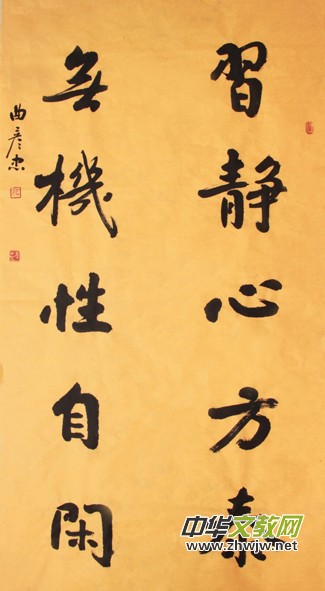 習靜心方泰
無機性自閑
曲彦忠
中华文教网
www.zhwjw.net